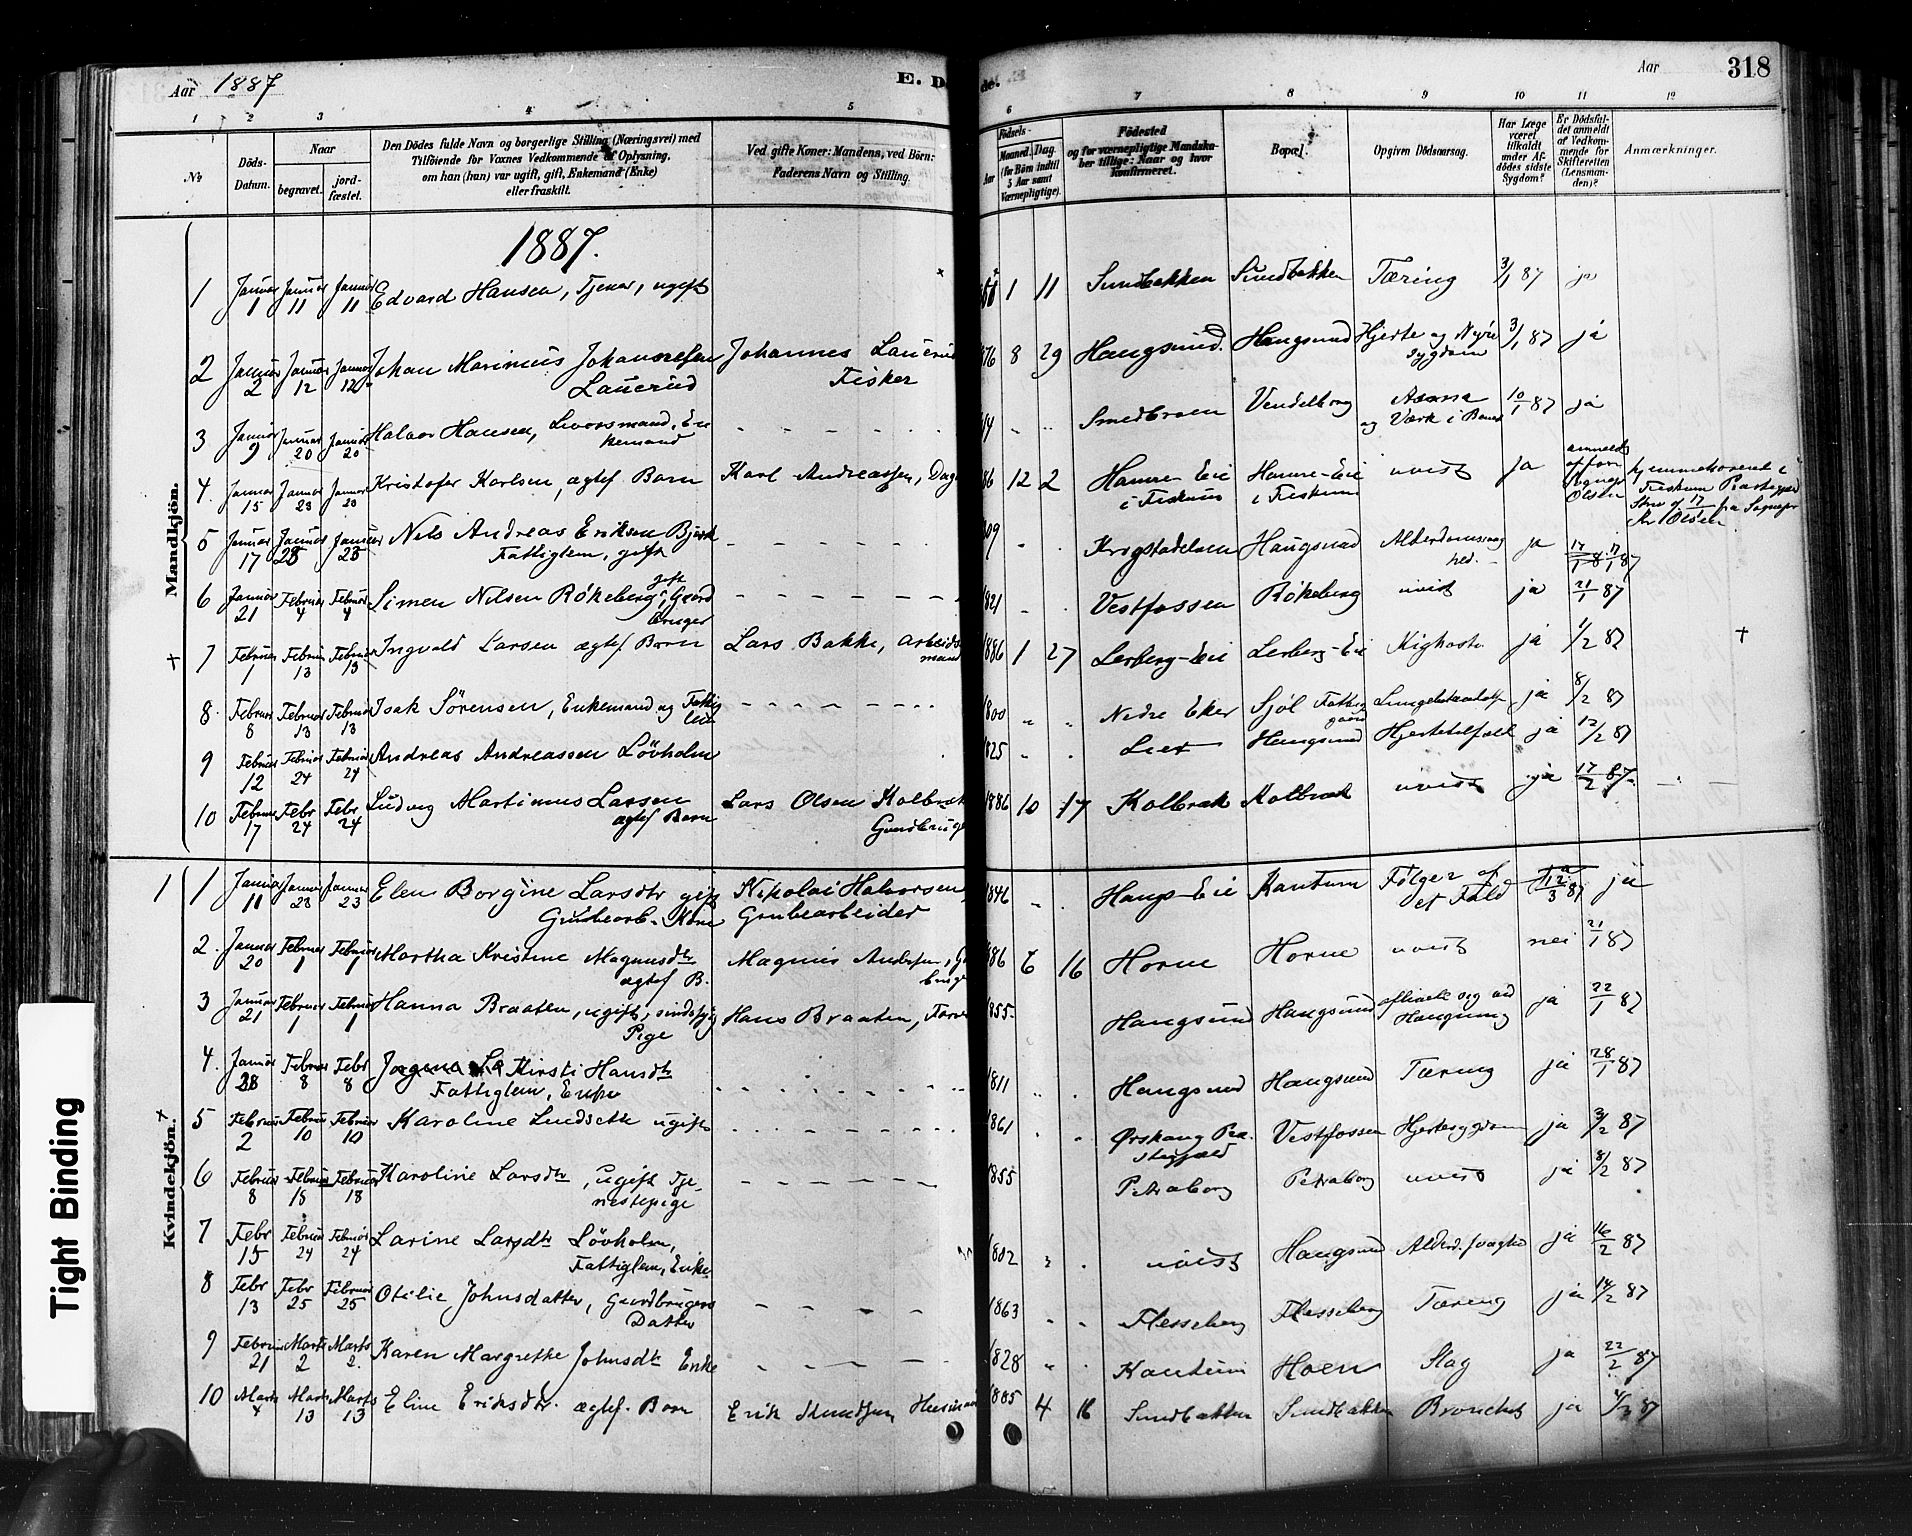 Aar 1887
E. Dö
de.
Aar
318
1 2 3 4 5 6 7 8 9 10 11 12
No
Döds-Datum.
Naar
begravet.
jord-fæstet.
Den Dödes fulde Navn og borgerlige Stilling (Næringsvei) med
Tilföiende for Voxnes Vedkommende af Oplysning,
om han (hun) var ugift, gift, Enkemand (Enke)
eller fraskilt.
Ved gifte Koner: Mandens, ved Börn:
Faderens Navn og Stilling.
Födsels-
Aar
Maaned. Dag.
(for Börn indtil
5 Aar samt
Værnepligtige).
Födested
og for værnepligtige Mandska-
ber tillige: Naar og hvor
konfirmeret.
Bopæl.
Opgiven Dödsaarsag.
Har Læge
været
tilkaldt
under Af-
dödes sidste
Sygdom?
Er Dödsfal-
det anmeldt
af Vedkom-
mende for
Skifteretten
(Lensman-
den)?
Anmærkninger.
Mandkjön.
1887.
1 Januar 1 Januar 11 Januar 11 Edvard Hansen, Tjener, ugift 1 11 Sundbakken Sundbakken Tæring 3/1 87 ja
2 Januar 2 Januar 12 Januar 12 Johan Marinius Johannesen Lauerud Johannes Lauerud Fisker 876 8 29 Haugsund Haugsund Hjerte og Nyre sygdom 3/1 87 ja
3 Januar 9 Januar 20 Januar 20 Halvor Hansen, Enkemand Smedbroen Vendelborg og Værk i Benet 10/1 87 ja
4. Januar 15 Januar 23 Januar 23 Kristofer Karlsen, ægtef Barn Karl Andreassen, Dag 86 12 2 Hamre Eie i Fiskum Hamre-Eie i Fiskum uvist ja Olsen hjemmehørende i Fiskum 17/1 fra Olsen
5 Januar 17 Januar 25 Januar 25 Nels Andreas Eriksen Bjørk Fattiglem, gift 809 Krogstadelven Haugsund Alderdomssvaghed ja 17/1 87
6 Januar 21 Februar 4 Februar 4 Simen Nilsen Rökeberg, gift Gaardbruger 1821 Vestfossen Rökeberg uvist ja 21/1 87
7 Februar 1 Februar 13 Februar 13 Ingvald Larsen ægtef Barn Lars Bakke, Arbeidsmand 1886 1 27 Lerberg-Eie Lerberg-Eie Kighoste ja 1/2 87
8. Februar 8 Februar 13 Februar 13 Isak Sörensen, Enkemand og Fattiglem 1800 Nedre Eker Sjöl Fattiggaard ja 8/2 87
9 Februar 12 Februar 24 Februar 24 Andreas Andreassen Lövholm 1825 Lier Haugsund Hjertetilfæl ja 12/2 87
10 Februar 17 Febr 24 Febr 24 Ludvig Martinius Larsen ægtef Barn Lars Olsen Kolbræk Gaardbruger 1886 10 17 Kolbræk Kolbræk uvist ja 17/2 87
Kvindekjön.
1 1 Januar 11 Januar 23 Januar 23 Elen Borgine Larsdtr gift Grubearb. Kone Nikolai Halvorsen Grubearbeider 1846 Haugs-Eie Kantum Fölger af et Fald ja
2. Januar 20 Februar 1 Februar 1 Martha Kristine Magnusdtr ægtef B. Magnus Andersen, 886 6 16 Horne Horne uvist nei 21/1 87
3 Januar 21 Februar 1 Februar 1 Hanna Braaten, ugift, sindssyg Pige Hans Braaten, 1855 Haugsund Haugsund ja 22/1 87
4. Januar 28 Februar 8 Febr 8 Kirsti Hansdtr Fattiglem, Enke 1811 Haugsund Haugsund Tæring ja 28/1 87
5 Februar 2 Februar 10 Februar 10 Karoline Lindseth ugift 1861 Ørskaug Præstegjæld Vestfossen Hjertesygdom ja 3/2 87
6 Februar 8 Februar 18 Februar 18 Karoline Larsdtr, ugift Tjenestepige 1855 Petraborg Petraborg uvist ja 8/2 87
7 Febr 15 Februar 24 Februar 24 Larine Larsdtr Lövholm, Fattiglem, Enke 1802 uvist Haugsund Alderd.svaghed ja 16/2 87
8 Febr 13 Febr 25 Februar 25 Otilie Johnsdatter, Gaardbrugers Datter 1863 Flesseberg Flesseberg Tæring ja 14/2 87
9 Februar 21 Marts 2 Marts 2. Karen Margrethe Johnsdtr Enke 1828 Kantum Hoen Slag ja 22/2 87
10 Marts Marts 13 Marts 13 Eline Eriksdtr. ægtef. Barn Erik Knudsen Husmand 1885 4 16 Sundbakken Sundbakken Bronchit ja
Tight Binding